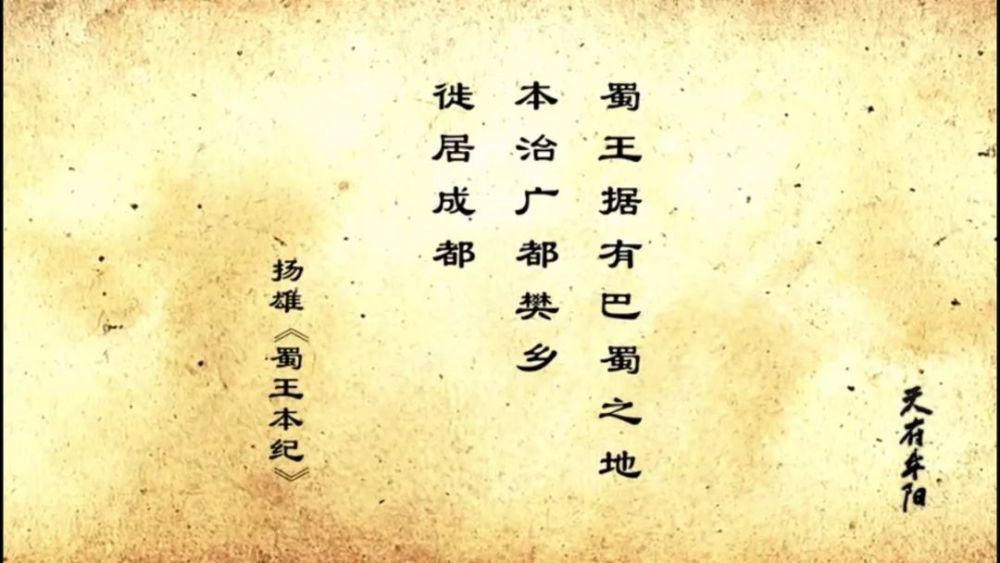 蜀王据有巴蜀之地
本治广都樊乡
徙居成都
扬雄《蜀王本纪》
天府牟阳